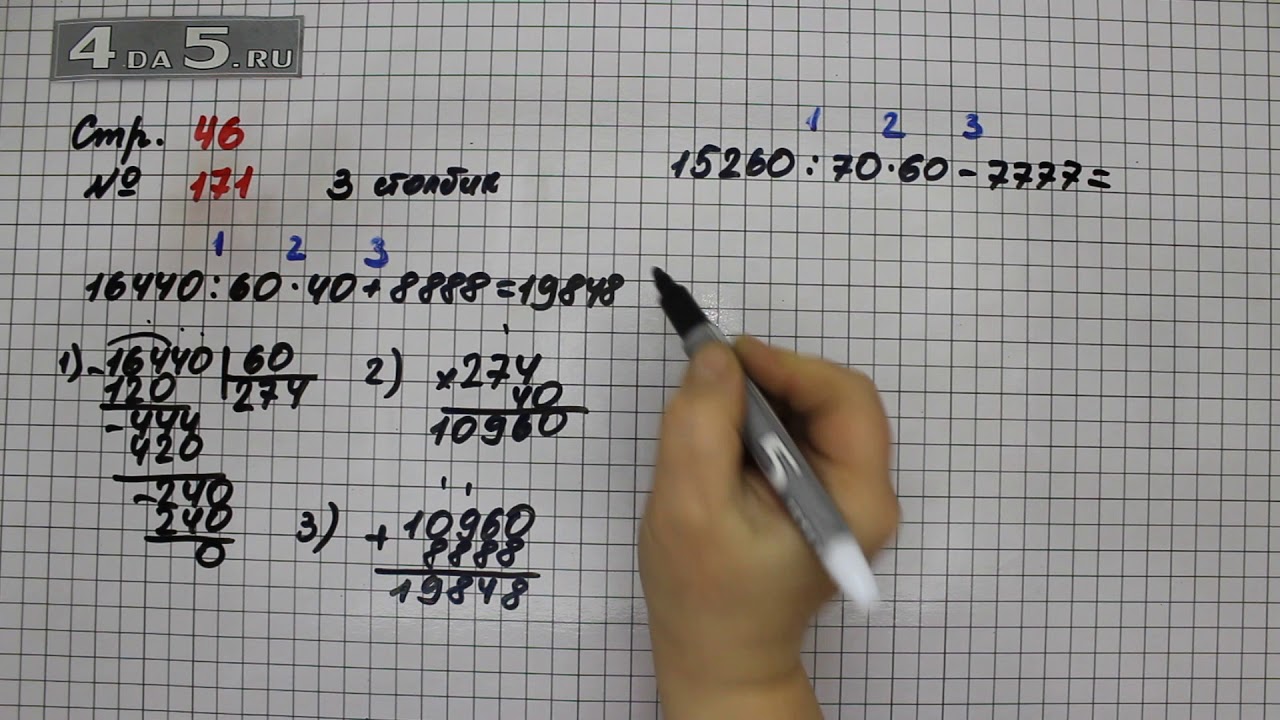 4 DA 5.RU
Стр. 46
№ 171 3 столбик
1 2 3
16440:60·40+8888=19848
1) -16440 60
120 274
-444
420
-240
240
0
2) ×274
40
10960
3) +10960
8888
19848
1 2 3
15260:70·60-7777=